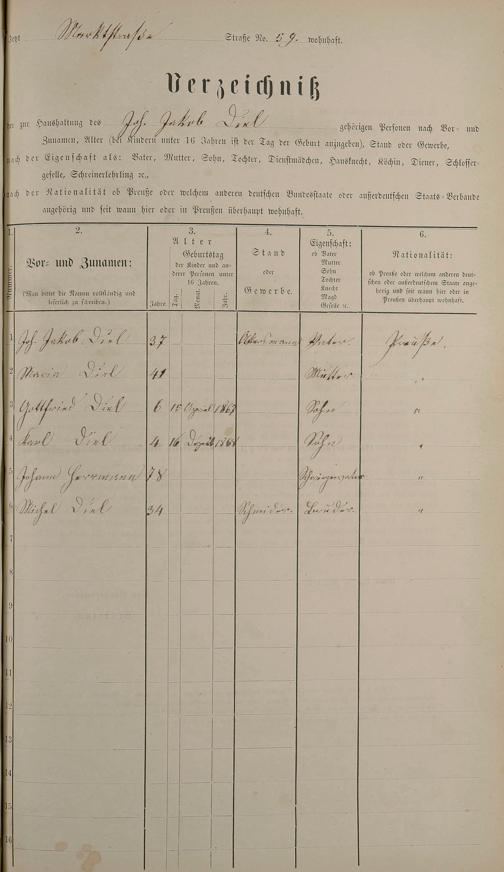 Jetzt Marktstraße Straße No. 59. wohnhaft.
Verzeichniß
der zur Haushaltung des Joh. Jakob Diel gehörigen Personen nach Vor- und
Zunamen, Alter (bei Kindern unter 16 Jahren ist der Tag der Geburt anzugeben), Stand oder Gewerbe,
nach der Eigenschaft als: Vater, Mutter, Sohn, Tochter, Dienstmädchen, Hausknecht, Köchin, Diener, Schlosser-
geselle, Schreinerlehrling ec.,
nach der Nationalität ob Preuße oder welchem anderen deutschen Bundesstaate oder außerdeutschen Staats-Verbande
angehörig und seit wann hier oder in Preußen überhaupt wohnhaft.
1. 2. 3. 4. 5. 6.
Nummer.
Vor- und Zunamen:
(Man bittet die Namen vollständig und
leserlich zu schreiben.)
Alter
Geburtstag
der Kinder und an-
derer Personen unter
16 Jahren.
Jahre. Tag. Monat. Jahr.
Stand
oder
Gewerbe.
Eigenschaft:
ob Vater
Mutter
Sohn
Tochter
Knecht
Magd
Geselle ec.
Nationalität:
ob Preuße oder welchem anderen deut-
schen oder außerdeutschen Staate ange-
hörig und seit wann hier oder in
Preußen überhaupt wohnhaft.
1 Joh. Jakob Diel 37 Ackersmann Vater Preuße.
2 Maria Diel 41 Mutter "
3 Gottfried Diel 6 April Sohn "
4 Karl Diel 4 16 Sohn "
5 Johann Herrmann 78 Schwiegervater "
6 Michel Diel 34 Schneider. Bruder. "
7
8
9
10
11
12
13
14
15
16